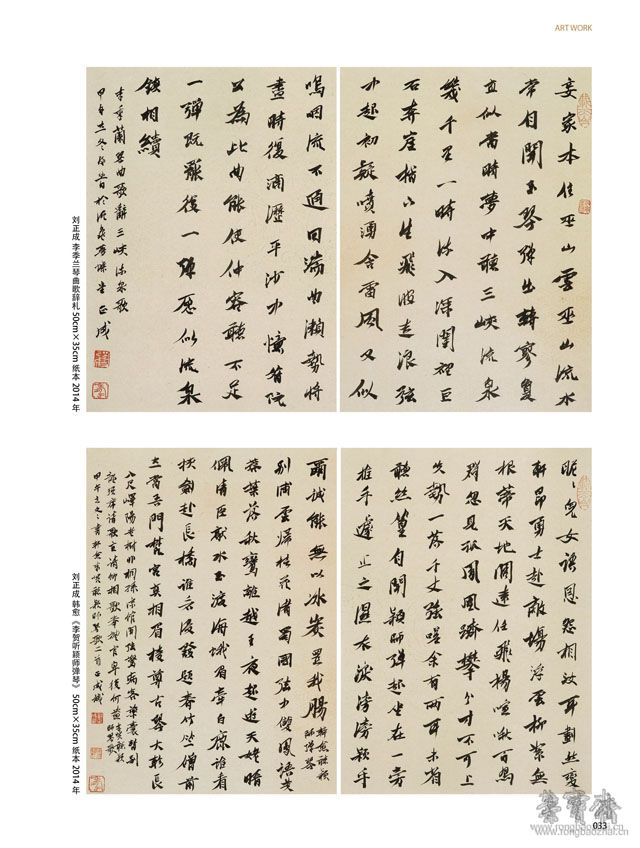 ART WORK
妾家本住巫山雲巫山流水
常自聞玉琴彈出轉寥夐
直似當時夢中聽三峽流泉
幾千里一時流入深閨裡巨
石奔崖指下生飛波走浪弦
中起初疑噴湧含雷風又似
嗚咽流不通回湍曲瀨勢將
盡時復滴瀝平沙中憶昔阮
公為此曲能使仲容聽不足
一彈既罷復一彈願似流泉
鎮相續
李季蘭琴曲歌辭三峽流泉歌
甲午立冬 正成
刘正成 李季兰琴曲歌辞札 50cm×35cm 纸本 2014年
昵昵兒女語恩怨相汝耳劃然變
軒昂勇士赴敵場浮雲柳絮無
根蒂天地闊遠任飛楊喧啾百鳥
群忽見孤鳳凰躋攀分寸不可上
失勢一落千丈強嗟余有兩耳未省
聽絲篁自聞穎師彈起坐在一旁
推手遽止之濕衣淚滂滂穎乎
爾誠能無以冰炭置我腸
韓愈聽穎師彈琴
別浦雲歸桂花渚蜀國弦中雙鳳語芙
蓉葉落秋鸞離越王夜起遊天姥暗
佩清臣敲水玉渡海蛾眉牽白鹿誰看
挾劍赴長橋誰看浸髮題春竹竺僧前
立當吾門梵宮真相眉棱尊古琴大軫長
八尺嶧陽老樹非桐孫涼館聞弦驚病客藥囊暫別
龍須席請歌直請卿相歌奉禮官卑復何益
李賀聽穎師琴歌
甲午立冬書韓愈李賀聽穎師琴歌二首正成識
刘正成 韩愈《李贺听颖师弹琴》 50cm×35cm 纸本 2014年
033
荣宝斋
www.rongbaozhai.cn